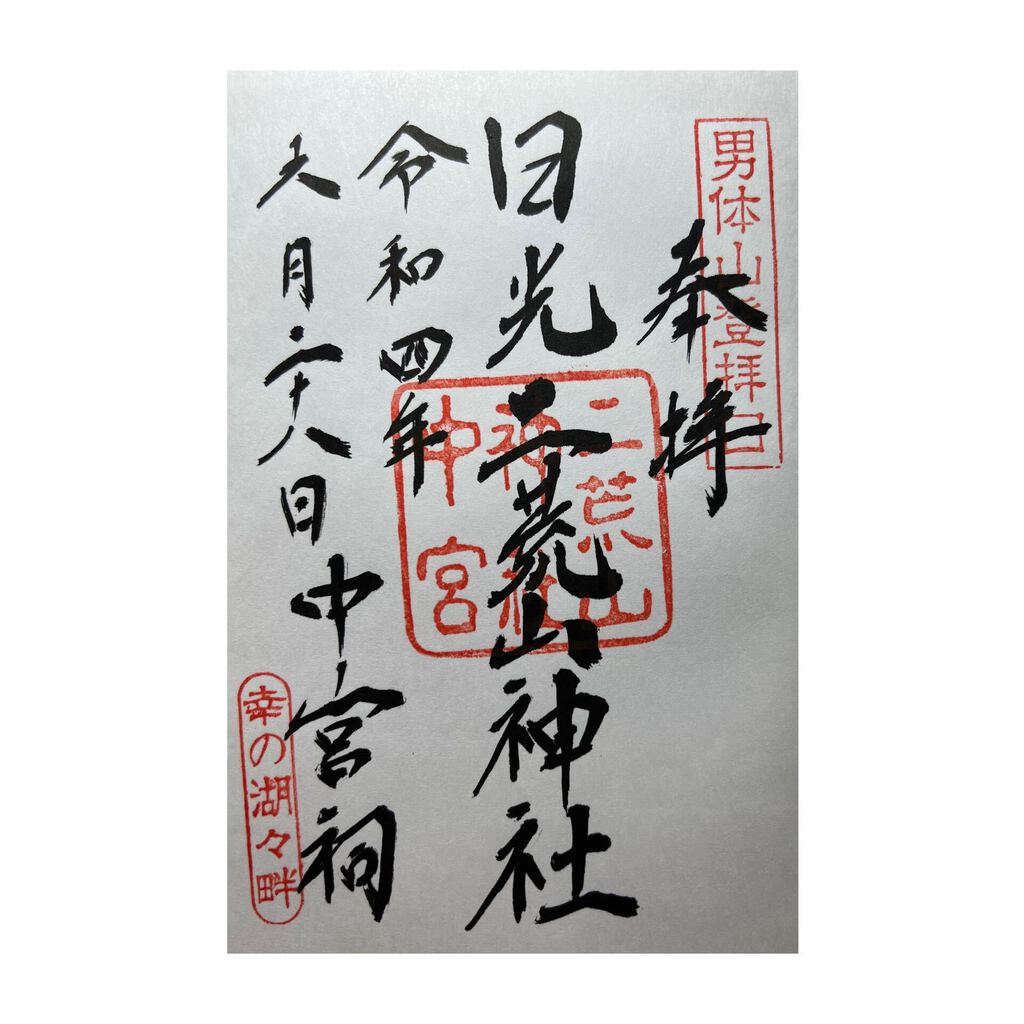 男体山登拝口
奉拝
日光二荒山神社
二荒山
神社
中宮
令和四年
六月二十八日
中宮祠
幸の湖々畔